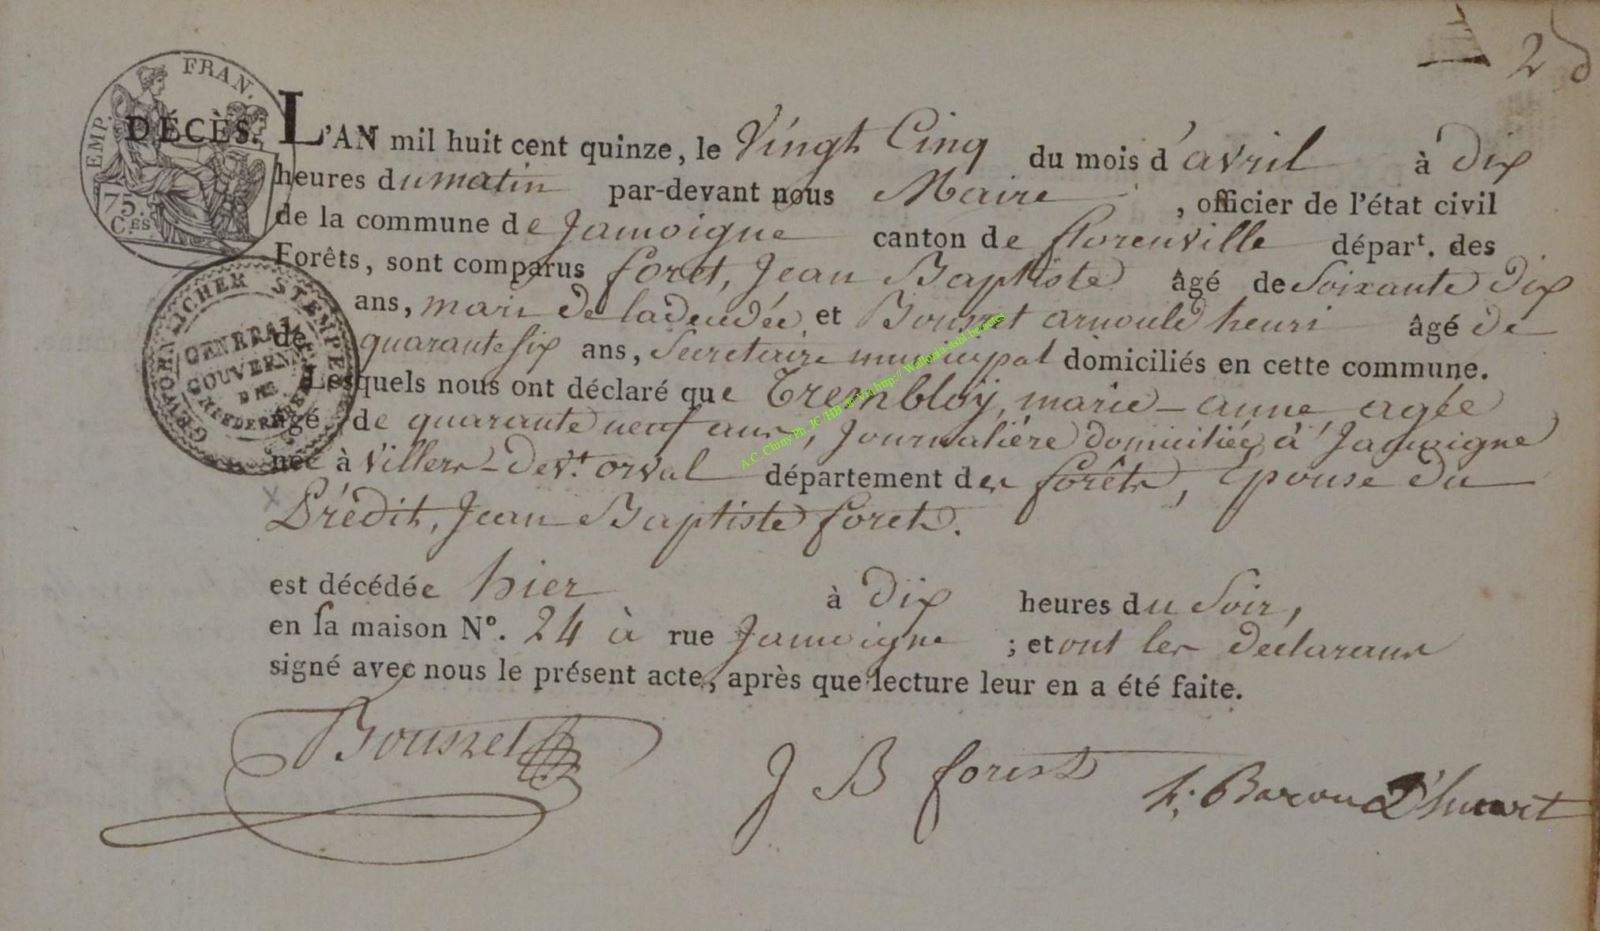 2 d
EMP. FRAN.
75.
C.ES
DÉCÈS. L'AN mil huit cent quinze, le Vingt Cinq du mois d'avril à dix
heures du matin par-devant nous Maire, officier de l'état civil
de la commune de Jamoigne canton de florenville départ. des
Forêts, sont comparus foret, Jean Baptiste âgé de Soixante dix
ans, mari de la décédée, et Bousret arnould henri âgé de
de quarante six ans, Secretaire municipal domiciliés en cette commune.
Lesquels nous ont déclaré que Trembloy, marie-anne agée
âgé de quarante neuf ans, Journalière domiciliée à Jamoigne
née à Villers-devt. orval département des forêts, Epouse du
Prédit, Jean Baptiste foret.
est décédée hier à dix heures du Soir,
en sa maison No. 24 à rue Jamoigne ; et ont les declarans
signé avec nous le présent acte, après que lecture leur en a été faite.
Bousret
J B forest
h: Baron D'huart
GOUVERNICHER STEMPEL
GENERAL
GOUVERN
DES
NIEDER
A.C. Cluny Ph. JC /HB